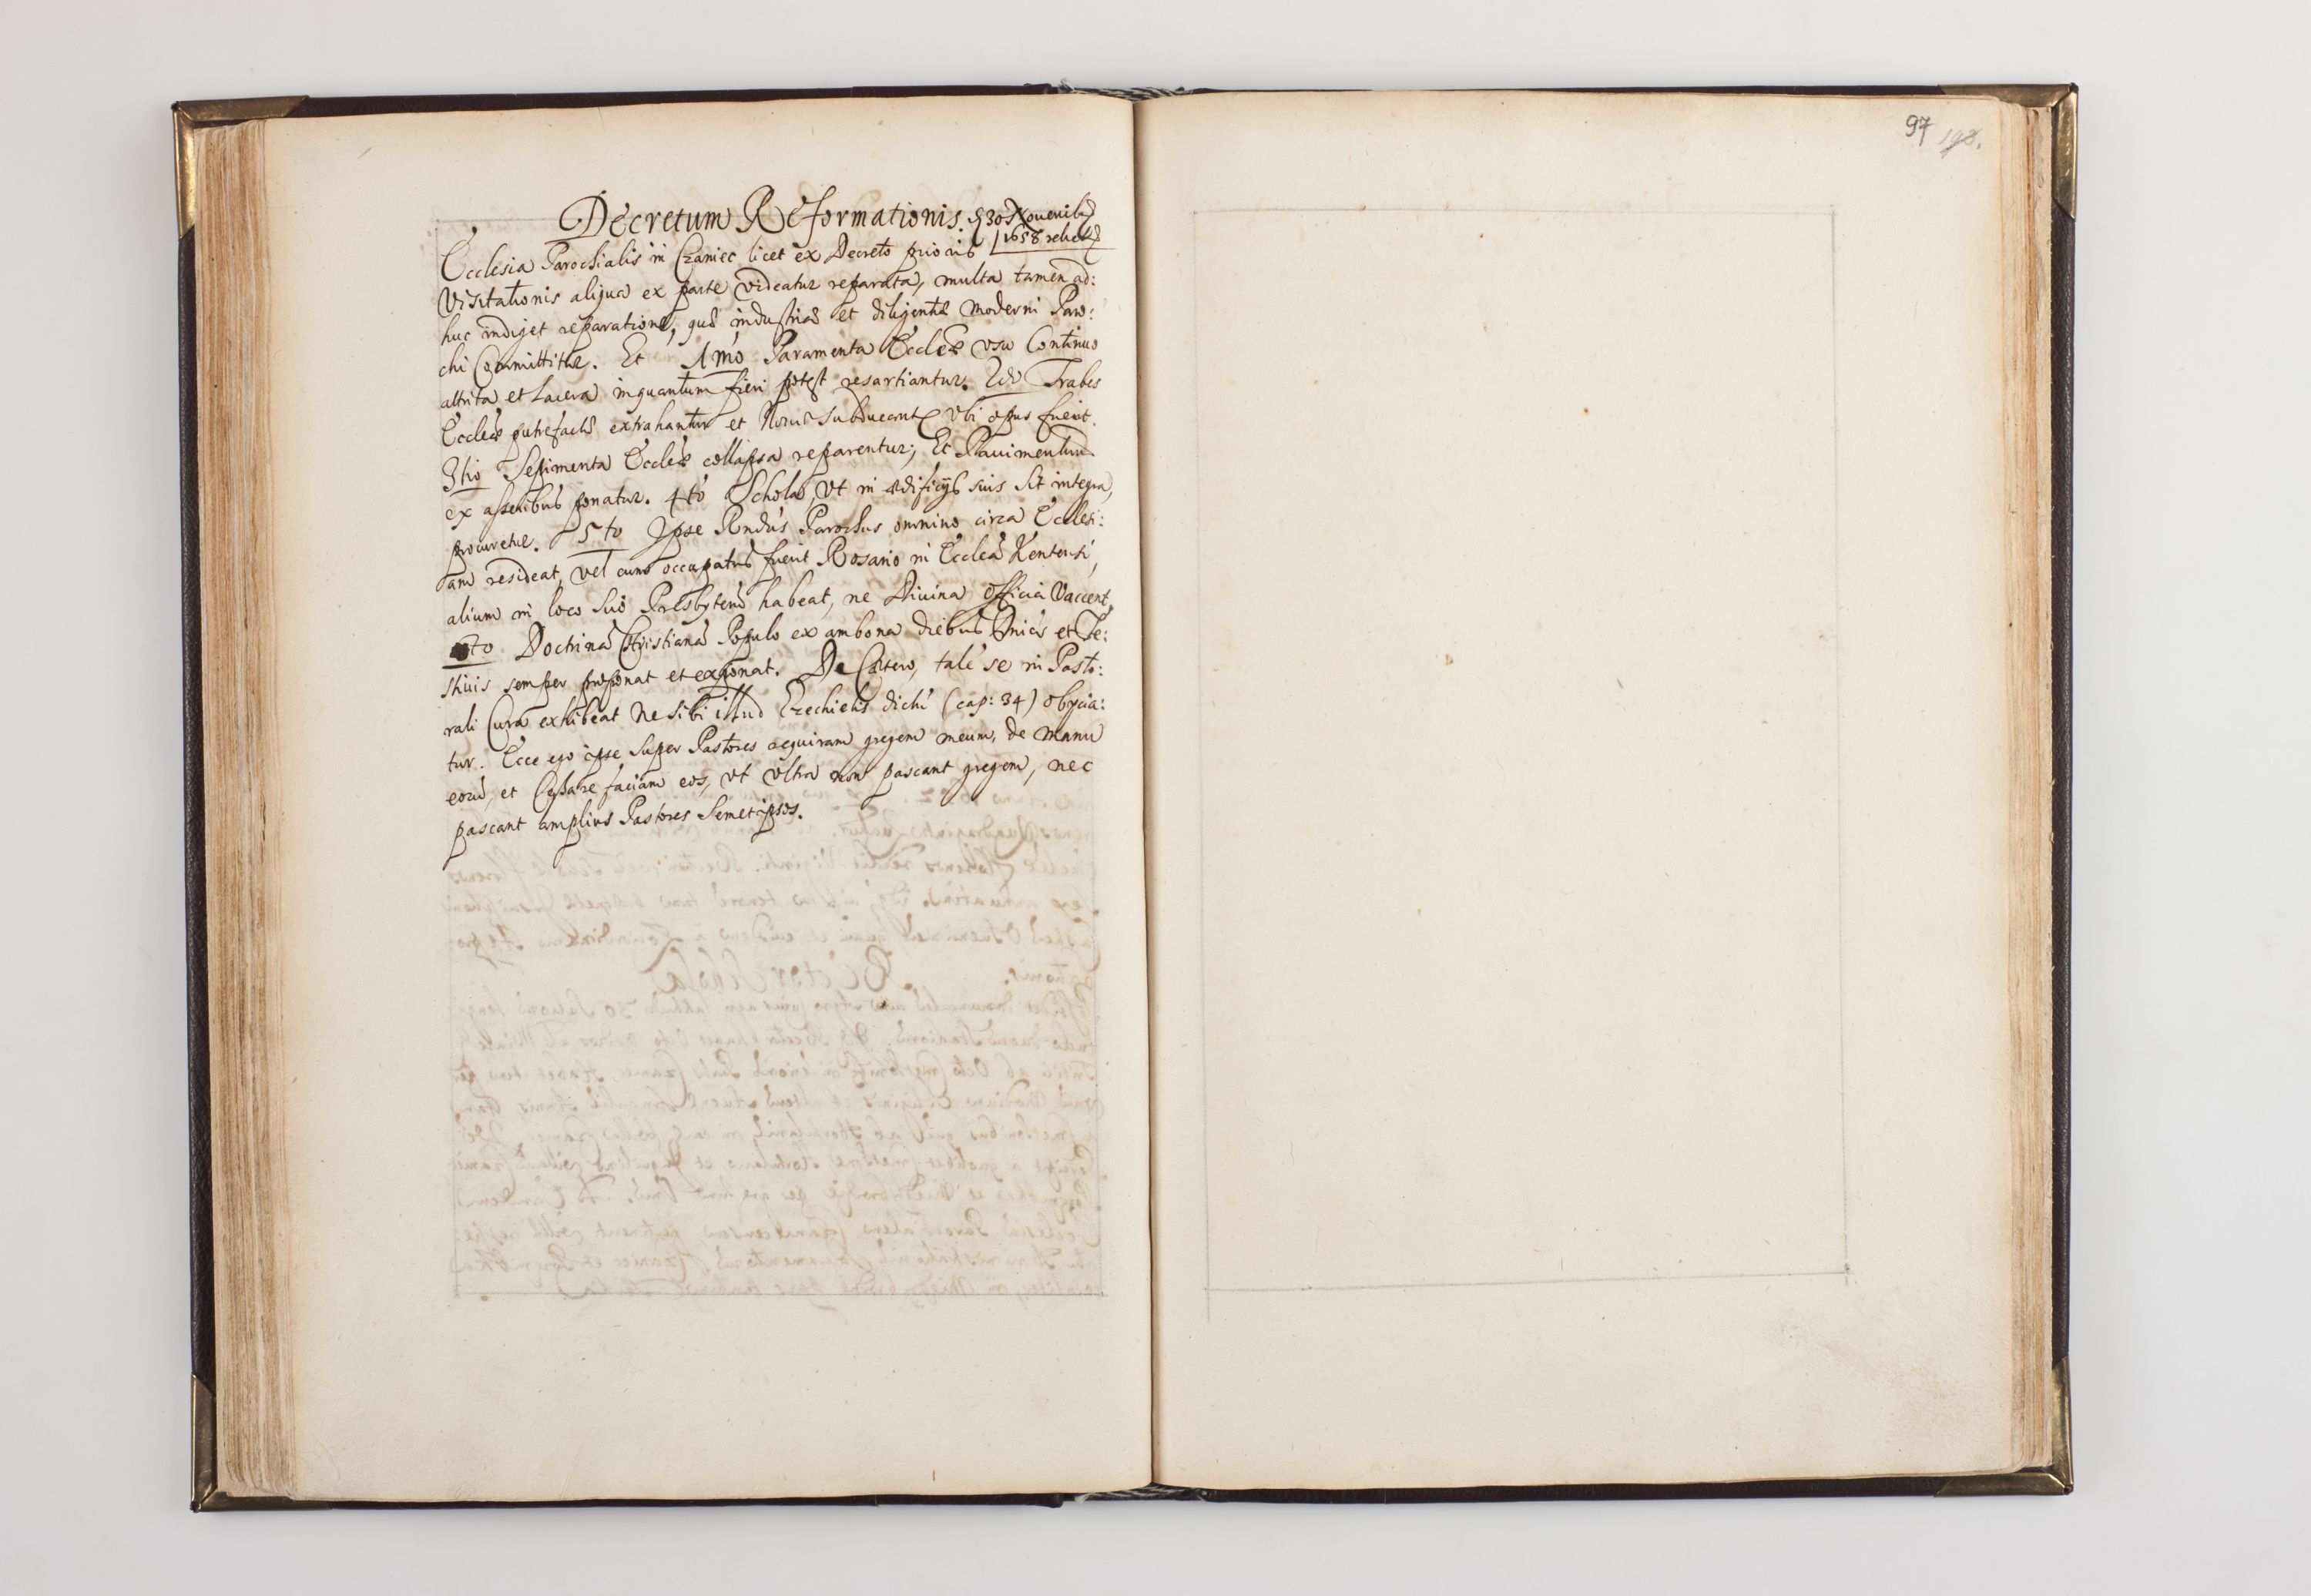 97 198.
Decretum Reformationis. 30 Novemb
1658 relict
Ecclesia Parochialis in Czaniec licet ex Decreto prioris
Visitationis aliqua ex parte videatur reparata, multa tamen ad:
huc indiget reparatione, quæ industriæ et diligentiæ moderni Paro:
chi Committitur. Et 1mo Paramenta Eccleæ usu Continuo
attrita et Lacera inquantum fieri potest resartiantur. 2do Trabes
Eccleæ putrefactæ extrahantur et Novæ subducantur vbi opus fuerit.
3tio Sepimenta Eccleæ collapsa reparentur; Et Pauimentum
ex asseribus ponatur. 4to Schola, vt in ædificijs suis sit integra,
procuretur. 5to Ipse Rndus Parochus omnino circa Ecclesi:
am resideat, vel cum occupatus fuerit Rosario in Ecclea Kentensi,
alium in loco suo Presbyterũ habeat, ne Diuina officia vacent.
6to Doctrinã Christianã Populo ex ambona diebus Dnicis et Fe:
stiuis semper proponat et exponat. De Cætero, tale se in Pasto:
rali Cura exhibeat ne sibi illud Ezechielis dici (cap: 34) obijcia:
tur. Ecce ego ipse super Pastores requiram gregem meum, de manu
eorũ, et Cessare faciam eos, vt vltra non pascant gregem, nec
pascant amplius Pastores semetipsos.